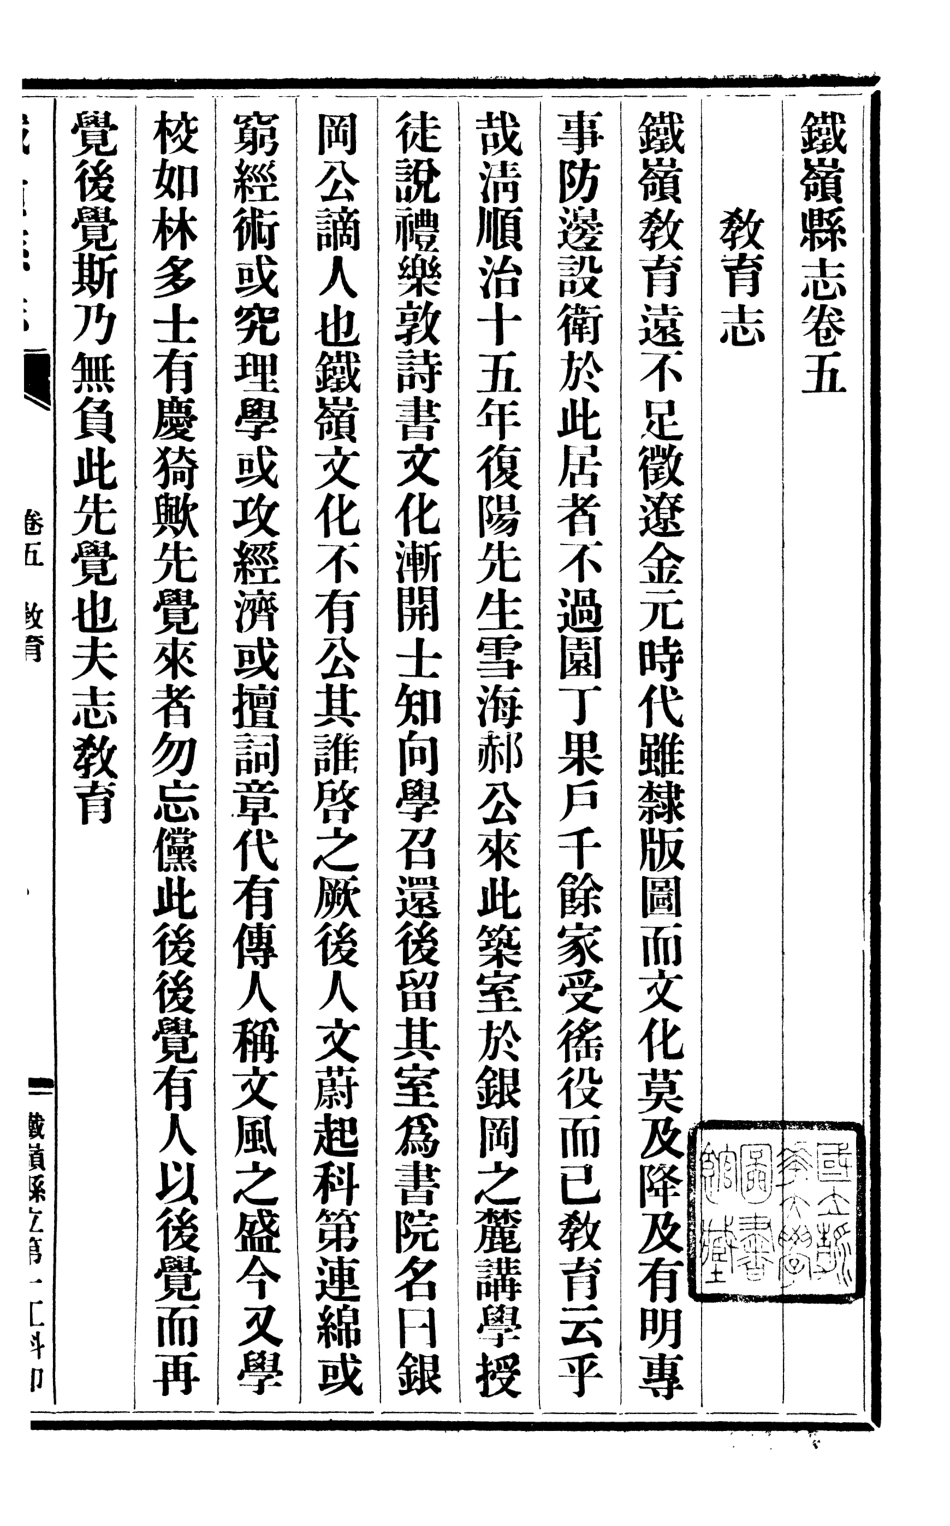 鐵嶺縣志卷五
教育志
鐵嶺教育遠不足徵遼金元時代雖隸版圖而文化莫及降及有明專
事防邊設衛於此居者不過園丁果戶千餘家受徭役而已教育云乎
哉清順治十五年復陽先生雪海郝公來此築室於銀岡之麓講學授
徒說禮樂敦詩書文化漸開士知向學召還後留其室爲書院名曰銀
岡公謫人也鐵嶺文化不有公其誰啓之厥後人文蔚起科第連綿或
窮經術或究理學或攻經濟或擅詞章代有傳人稱文風之盛今又學
校如林多士有慶猗歟先覺來者勿忘儻此後後覺有人以後覺而再
覺後覺斯乃無負此先覺也夫志教育
卷五 教育
鐵嶺縣立第一工科印
國立清華大學圖書館藏